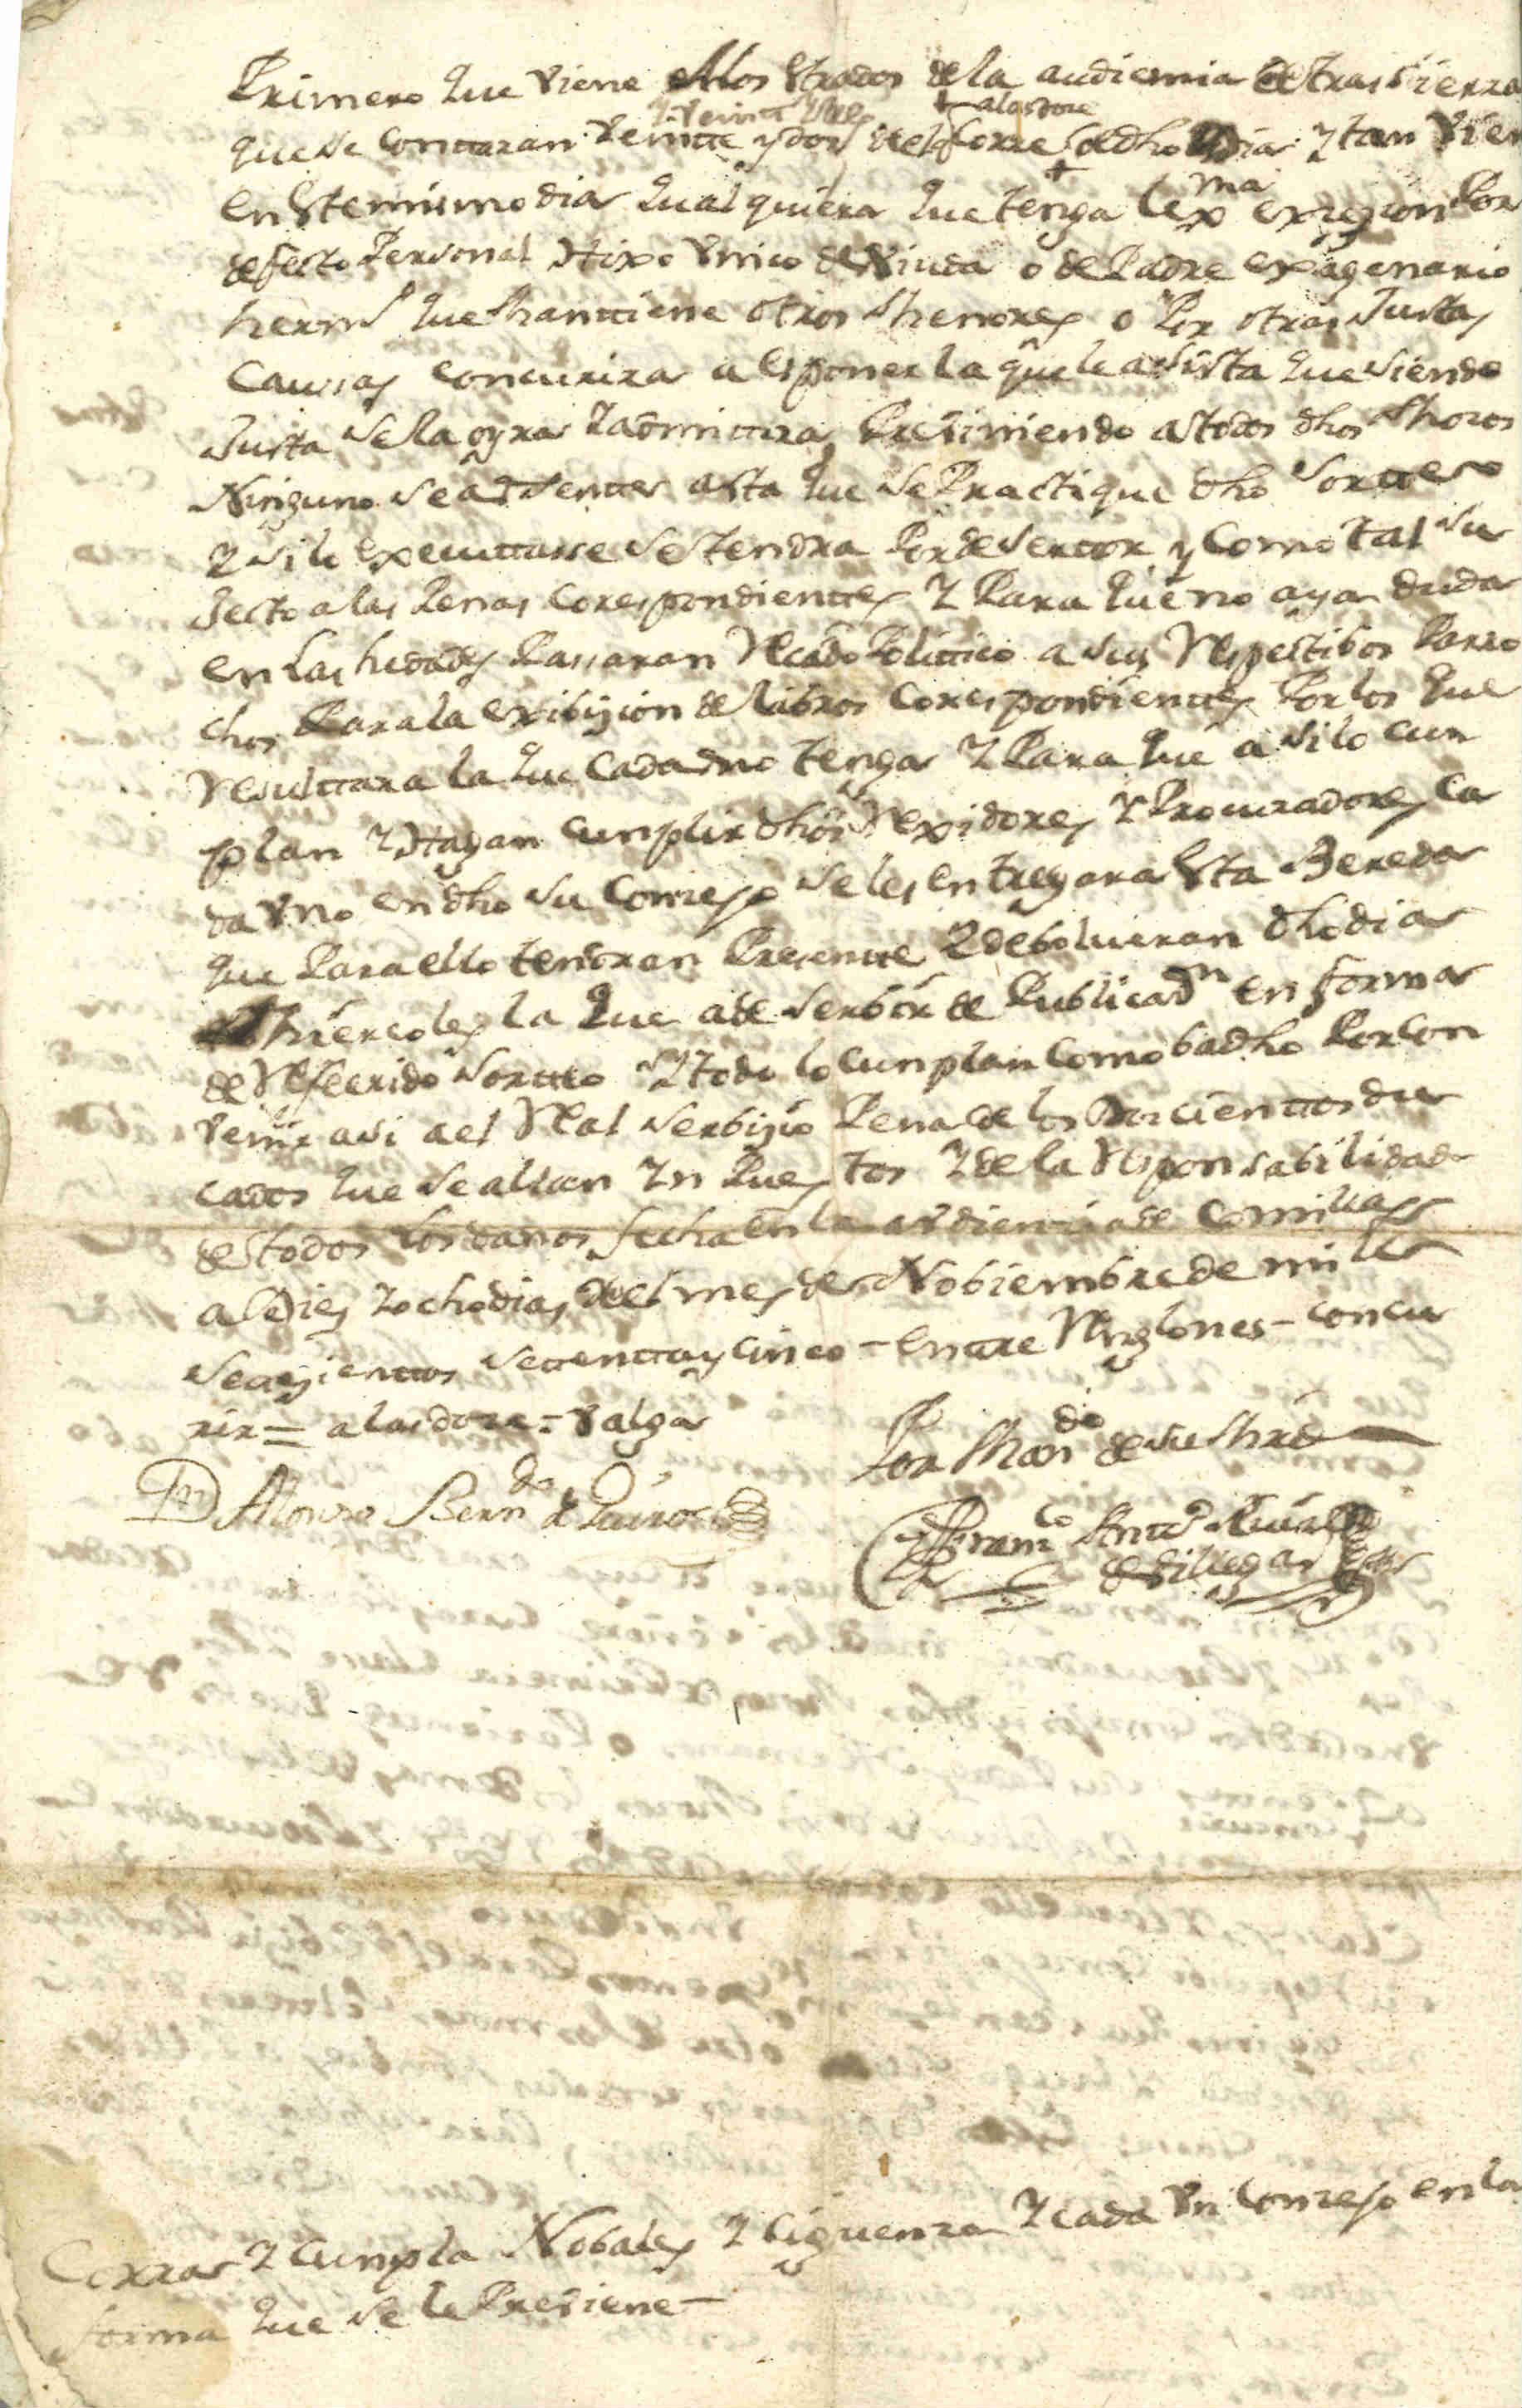 Primero que viene a los Estrados de la audiencia de tras sierra
y veintte y dos a las doze
que se conttaran veintte y dos del que corre de dho dia y tan vien
en Este mismo dia qualquiera que tenga lexma exzezion Por
defecto Personal Hixo Vnico de Viuda o de Padre exagenario
hermo que Manttiene otros Menores o Por otras Justas
Causas concurrira a Esponer la que le asista que siendo
Justa se la oyra y admittira Previniendo a Todos dhos Mozos
Ninguno se ausente asta que se Practique dho Sortteo
y si lo executtasse se Tendra Por desertor y Como Tal su
Jecto a las Penas Corespondienttes Y Para que no aya duda
en Las hedades Passaran Recado Polittico a sus Respectibos Parro
chos Para la exibizion de libros Corespondienttes Por los que
Resulttara la que Cada uno Tenga Y Para que asi lo cun
plan Y Hagan cunplir dhos Rexidores Y Procuradores Ca
da Vno en dho su Conzejo se les entregara Esta Bereda
que Para ello tendran Presentte Y debolueran dho dia
Miercoles la que a de serbir de Publicazn en forma
de Refeerido Sortteo Y todo lo cunplan como ba dho Por con
venir asi a el Real Serbizio Pena de los Doscienttos du
cados que se allan Yn Puestos Y de la Responsabilidad
de Todos los daños fecha en la audiencia de Comillas
a Dies y ocho dias del mes de Nobiembre de mil
Settezienttos settentta y cinco – Enttre Renglones – concu
rir = a las doze = Valga
Por Mando de su Mrd
Dn Alonso Berndo de Quiros
Franco Antto Ruiz
de Villegas
Corra y Cunpla Nobales Y Ciguenza Y cada Vn Conzejo en la
forma que se le Previene –